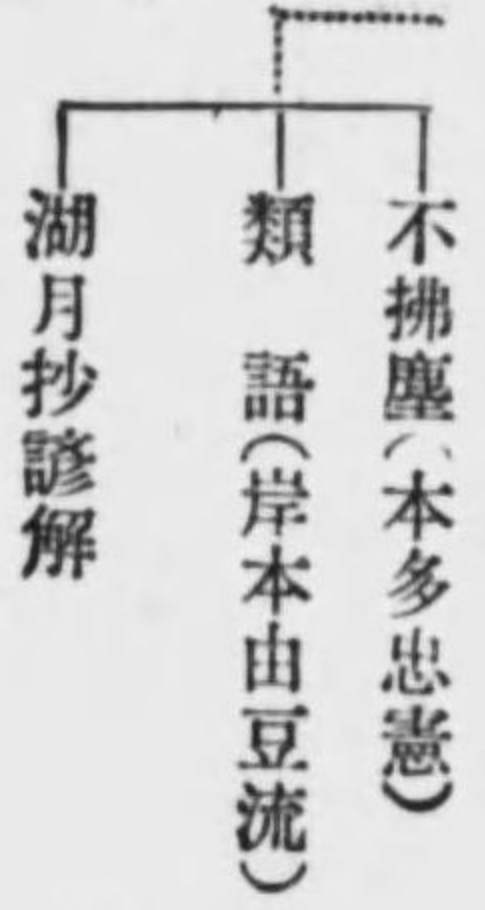 不拂塵(本多忠憲)
類語(岸本由豆流)
湖月抄諺解